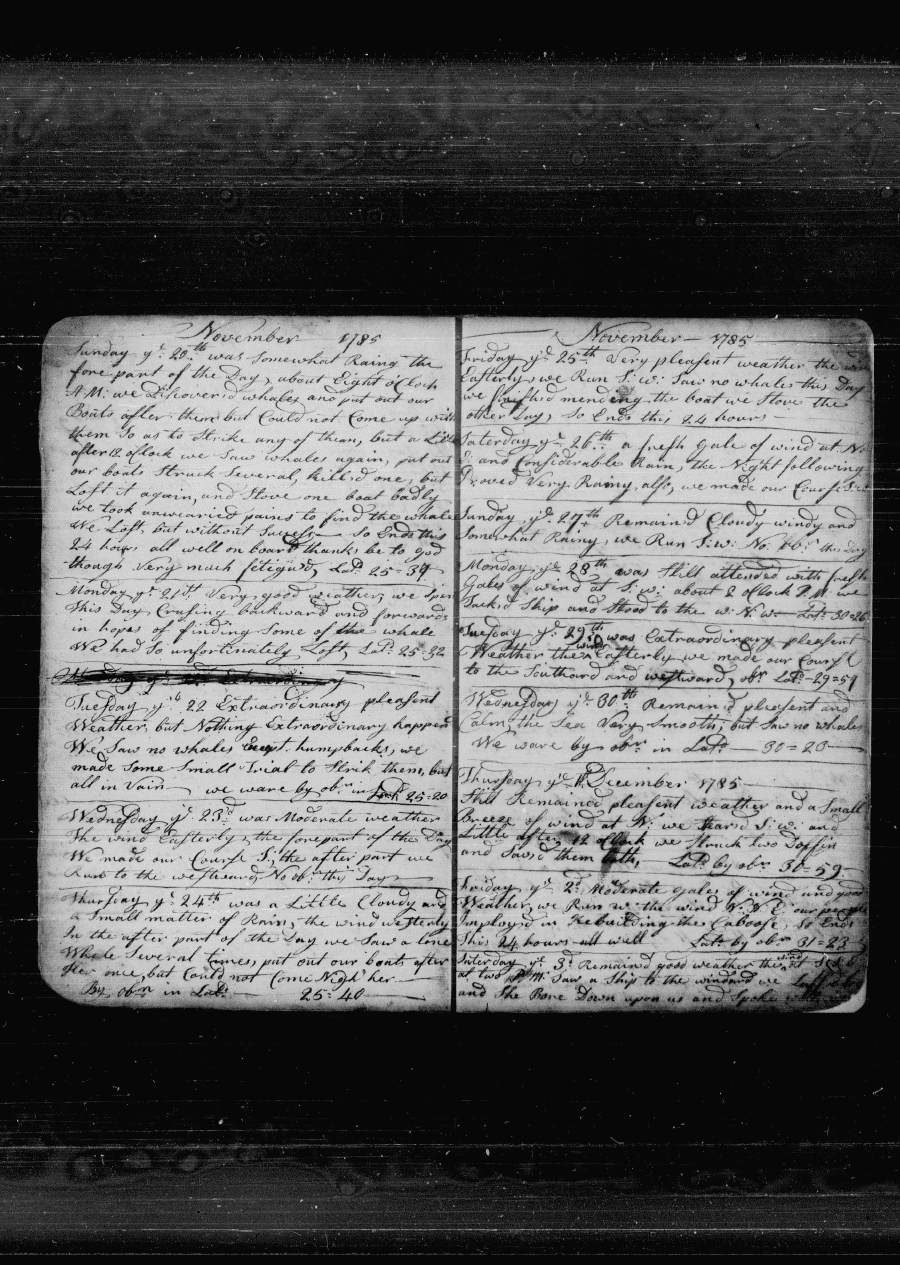 November 1785
Sunday ye 20th was Somewhat Raing the
fore part of the Day, about Eight oClock
A:M: we Discoverd whales and put out our
Boats after them but Could not Come up with
them So as to Strike any of them, but a Little
after 12 oClock we Saw whales again, put out
our boats Struck Several, killd one, but
Lost it again, and Stove one boat badly
we took unwearied pains to find the whale
We Lost, but without Success— So Ends this
24 hours all well on board thanks be to god
though Very much fetigu'd, Latd 25=39
Monday ye 21st Very good weather, we Spent
this Day Crusing backward and forwards
in hopes of finding Some of the whale
We had So unfortunately Lost, Latd 25=32
Tuesday ye 22 Extraordinary pleasent
Weather, but Nothing Extraordinary happend
We Saw no whales Except humpbacks, we
made Some Small Trial to Strik them, but
all in Vain— we ware by obn in Latd 25=20
Wednesday ye 23d was Moderate weather
The wind Easterly, the forepart of the Day
We made our Course S; the after part we
Run to the westward, No obn this Day
Thursday ye 24th was a Little Cloudy and
a Small matter of Rain, the wind westerly
In the after part of the Day we Saw a lone
Whale Several times, put out our boats after
Her once, but Could not Come Nigh her—
By obn in Latd— 25=40
November— 1785
Friday ye 25th Very pleasent weather the
Easterly, we Run S:W: Saw no whales this Day
we finish'd mending the boat we Stove the
other Day, So Ends this 24 hours
Saturday ye 26th a fresh Gale of wind at
E: and Considerable Rain, the Night following
Proved Very Rainy also, we made our Course
Sunday ye 27th Remain'd Cloudy windy and
Somewhat Rainy, we Run S:W: No. obn this Day
Monday ye 28th was Still attended with fresh
Gales of wind at S:W: about 2 oClock P:M: we
Tack'd Ship and Stood to the W:N:W— Latd 30=26
Tuesday ye 29th was Extraordinary pleasent
Weather the wind Easterly we made our Course
to the Southard and westward, obn Latd—29=59
Wednesday ye 30th Remain'd pleasent and
Calm, the Sea Very Smooth, but Saw no whales
We ware by obn in Latd— 30=20
Thursday ye 1st December 1785—
Still Remained pleasent weather and a Small
Breeze of wind at N: we Stear'd S:W: and
Little after 12 oClock we Struck two
and Sav'd them both,— Latd by obn 30=59
Friday ye 2d Moderate gales of wind and good
Weather, we Run the wind N:N:E: our people
Imploy'd in Rebuilding the Caboose, So Ends
this 24 hours all well Latd by obn 31=23
Saturday ye 3d Remain'd good weather the wind
at two P:M: Saw a Ship to the windard we
and She Bore Down upon us and Spoke